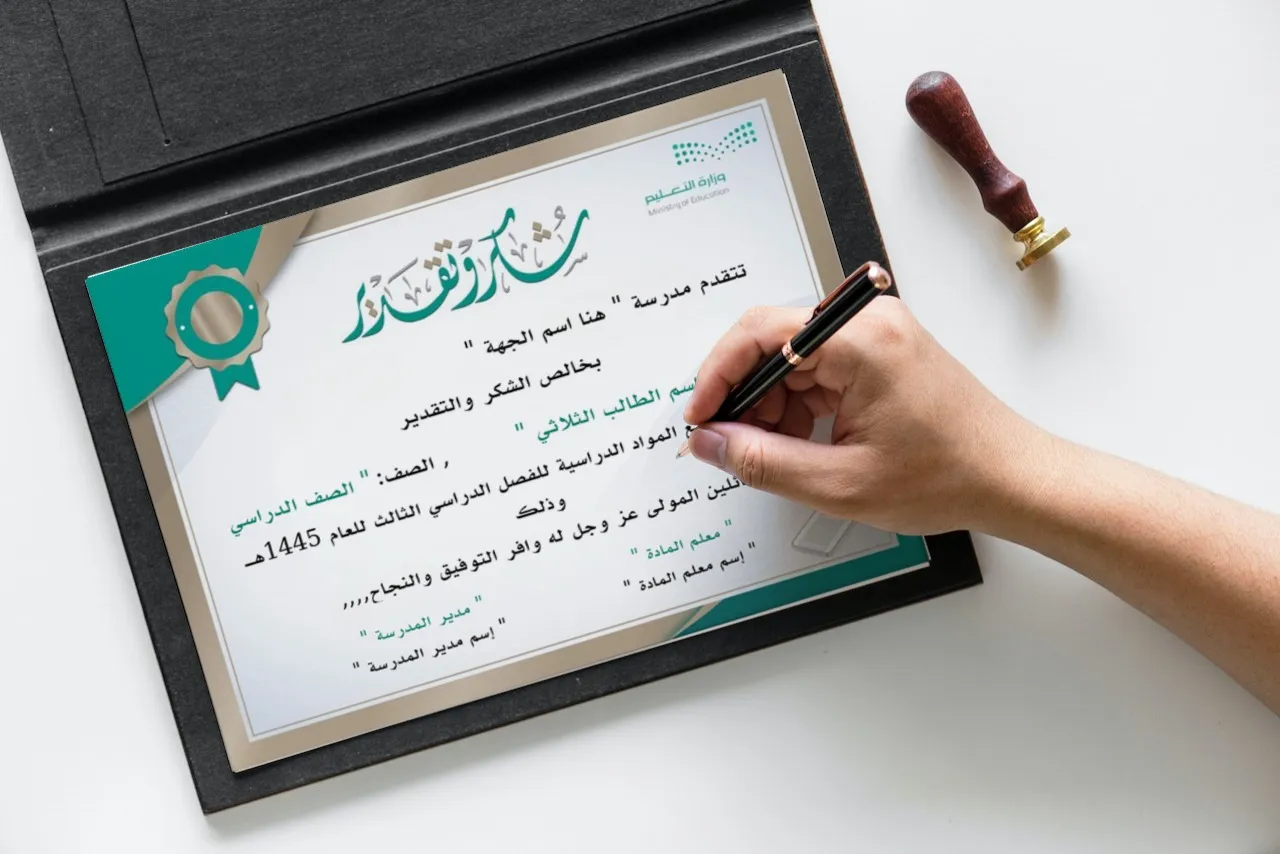 وزارة التعليم
Ministry of Education
شكر وتقدير
تتقدم مدرسة " هنا اسم الجهة "
بخالص الشكر والتقدير
اسم الطالب الثلاثي "
, الصف: " الصف الدراسي
المواد الدراسية للفصل الدراسي الثالث للعام 1445هـ
وذلك
المولى عز وجل له وافر التوفيق والنجاح,,,,
" معلم المادة "
" إسم معلم المادة "
" مدير المدرسة "
" إسم مدير المدرسة "